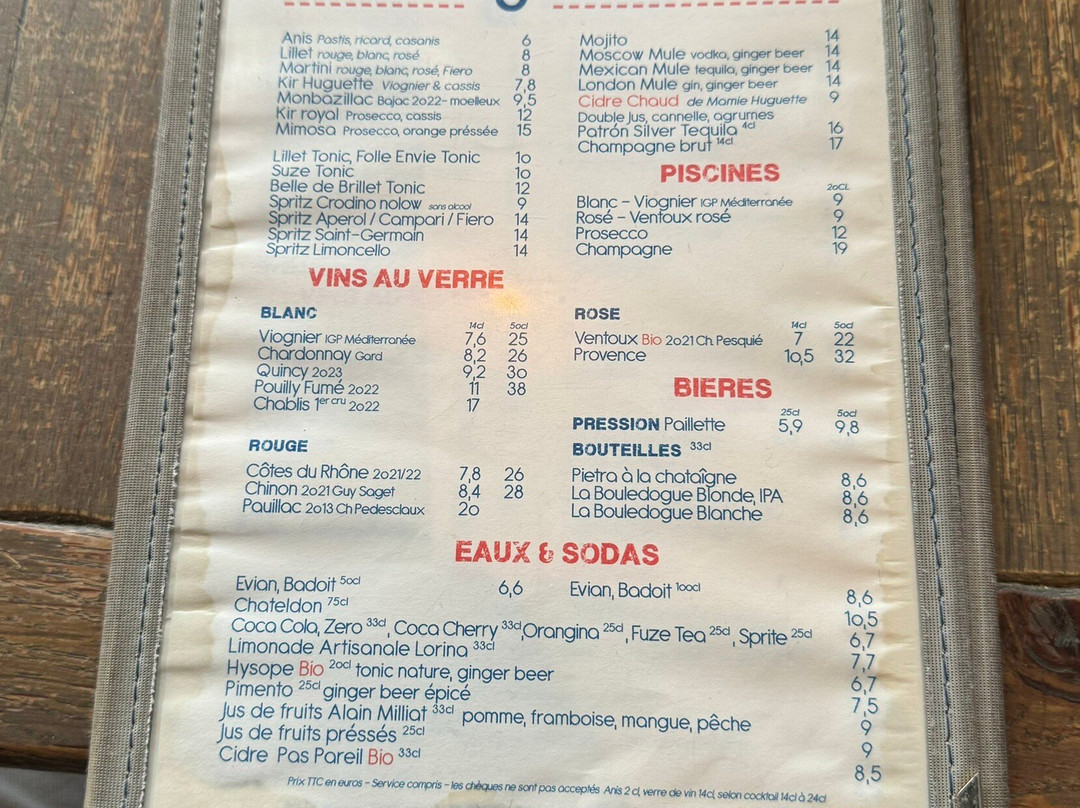 Anis Pastis, ricard, casanis 6
Lillet rouge, blanc, rosé 8
Martini rouge, blanc, rosé, Fiero 8
Kir Huguette Viognier & cassis 7,8
Monbazillac Bajac 2022- moelleux 9,5
Kir royal Prosecco, cassis 12
Mimosa Prosecco, orange préssée 15
Lillet Tonic, Folle Envie Tonic 10
Suze Tonic 10
Belle de Brillet Tonic 12
Spritz Crodino nolow sans alcool 9
Spritz Aperol / Campari / Fiero 14
Spritz Saint-Germain 14
Spritz Limoncello 14
Mojito 14
Moscow Mule vodka, ginger beer 14
Mexican Mule tequila, ginger beer 14
London Mule gin, ginger beer 14
Cidre Chaud de Mamie Huguette 9
Double Jus, cannelle, agrumes
Patrón Silver Tequila 4cl 16
Champagne brut 14cl 17
PISCINES
20CL
Blanc - Viognier IGP Méditerranée 9
Rosé - Ventoux rosé 9
Prosecco 12
Champagne 19
VINS AU VERRE
BLANC
14cl 50cl
Viognier IGP Méditerranée 7,6 25
Chardonnay Gard 8,2 26
Quincy 2023 9,2 30
Pouilly Fumé 2022 11 38
Chablis 1er cru 2022 17
ROUGE
Côtes du Rhône 2021/22 7,8 26
Chinon 2021 Guy Saget 8,4 28
Pauillac 2013 Ch Pedesclaux 20
ROSE
14cl 50cl
Ventoux Bio 2021 Ch. Pesquié 7 22
Provence 10,5 32
BIERES
25cl 50cl
PRESSION Paillette 5,9 9,8
BOUTEILLES 33cl
Pietra à la chataîgne 8,6
La Bouledogue Blonde, IPA 8,6
La Bouledogue Blanche 8,6
EAUX & SODAS
Evian, Badoit 50cl 6,6 Evian, Badoit 100cl 8,6
Chateldon 75cl 10,5
Coca Cola, Zero 33cl, Coca Cherry 33cl, Orangina 25cl, Fuze Tea 25cl, Sprite 25cl 6,7
Limonade Artisanale Lorina 33cl 7,7
Hysope Bio 20cl tonic nature, ginger beer 6,7
Pimento 25cl ginger beer épicé 7,5
Jus de fruits Alain Milliat 33cl pomme, framboise, mangue, pêche 9
Jus de fruits préssés 25cl 9
Cidre Pas Pareil Bio 33cl 8,5
Prix TTC en euros - Service compris - les chèques ne sont pas acceptés Anis 2 cl, verre de vin 14cl, selon cocktail 14cl à 24cl